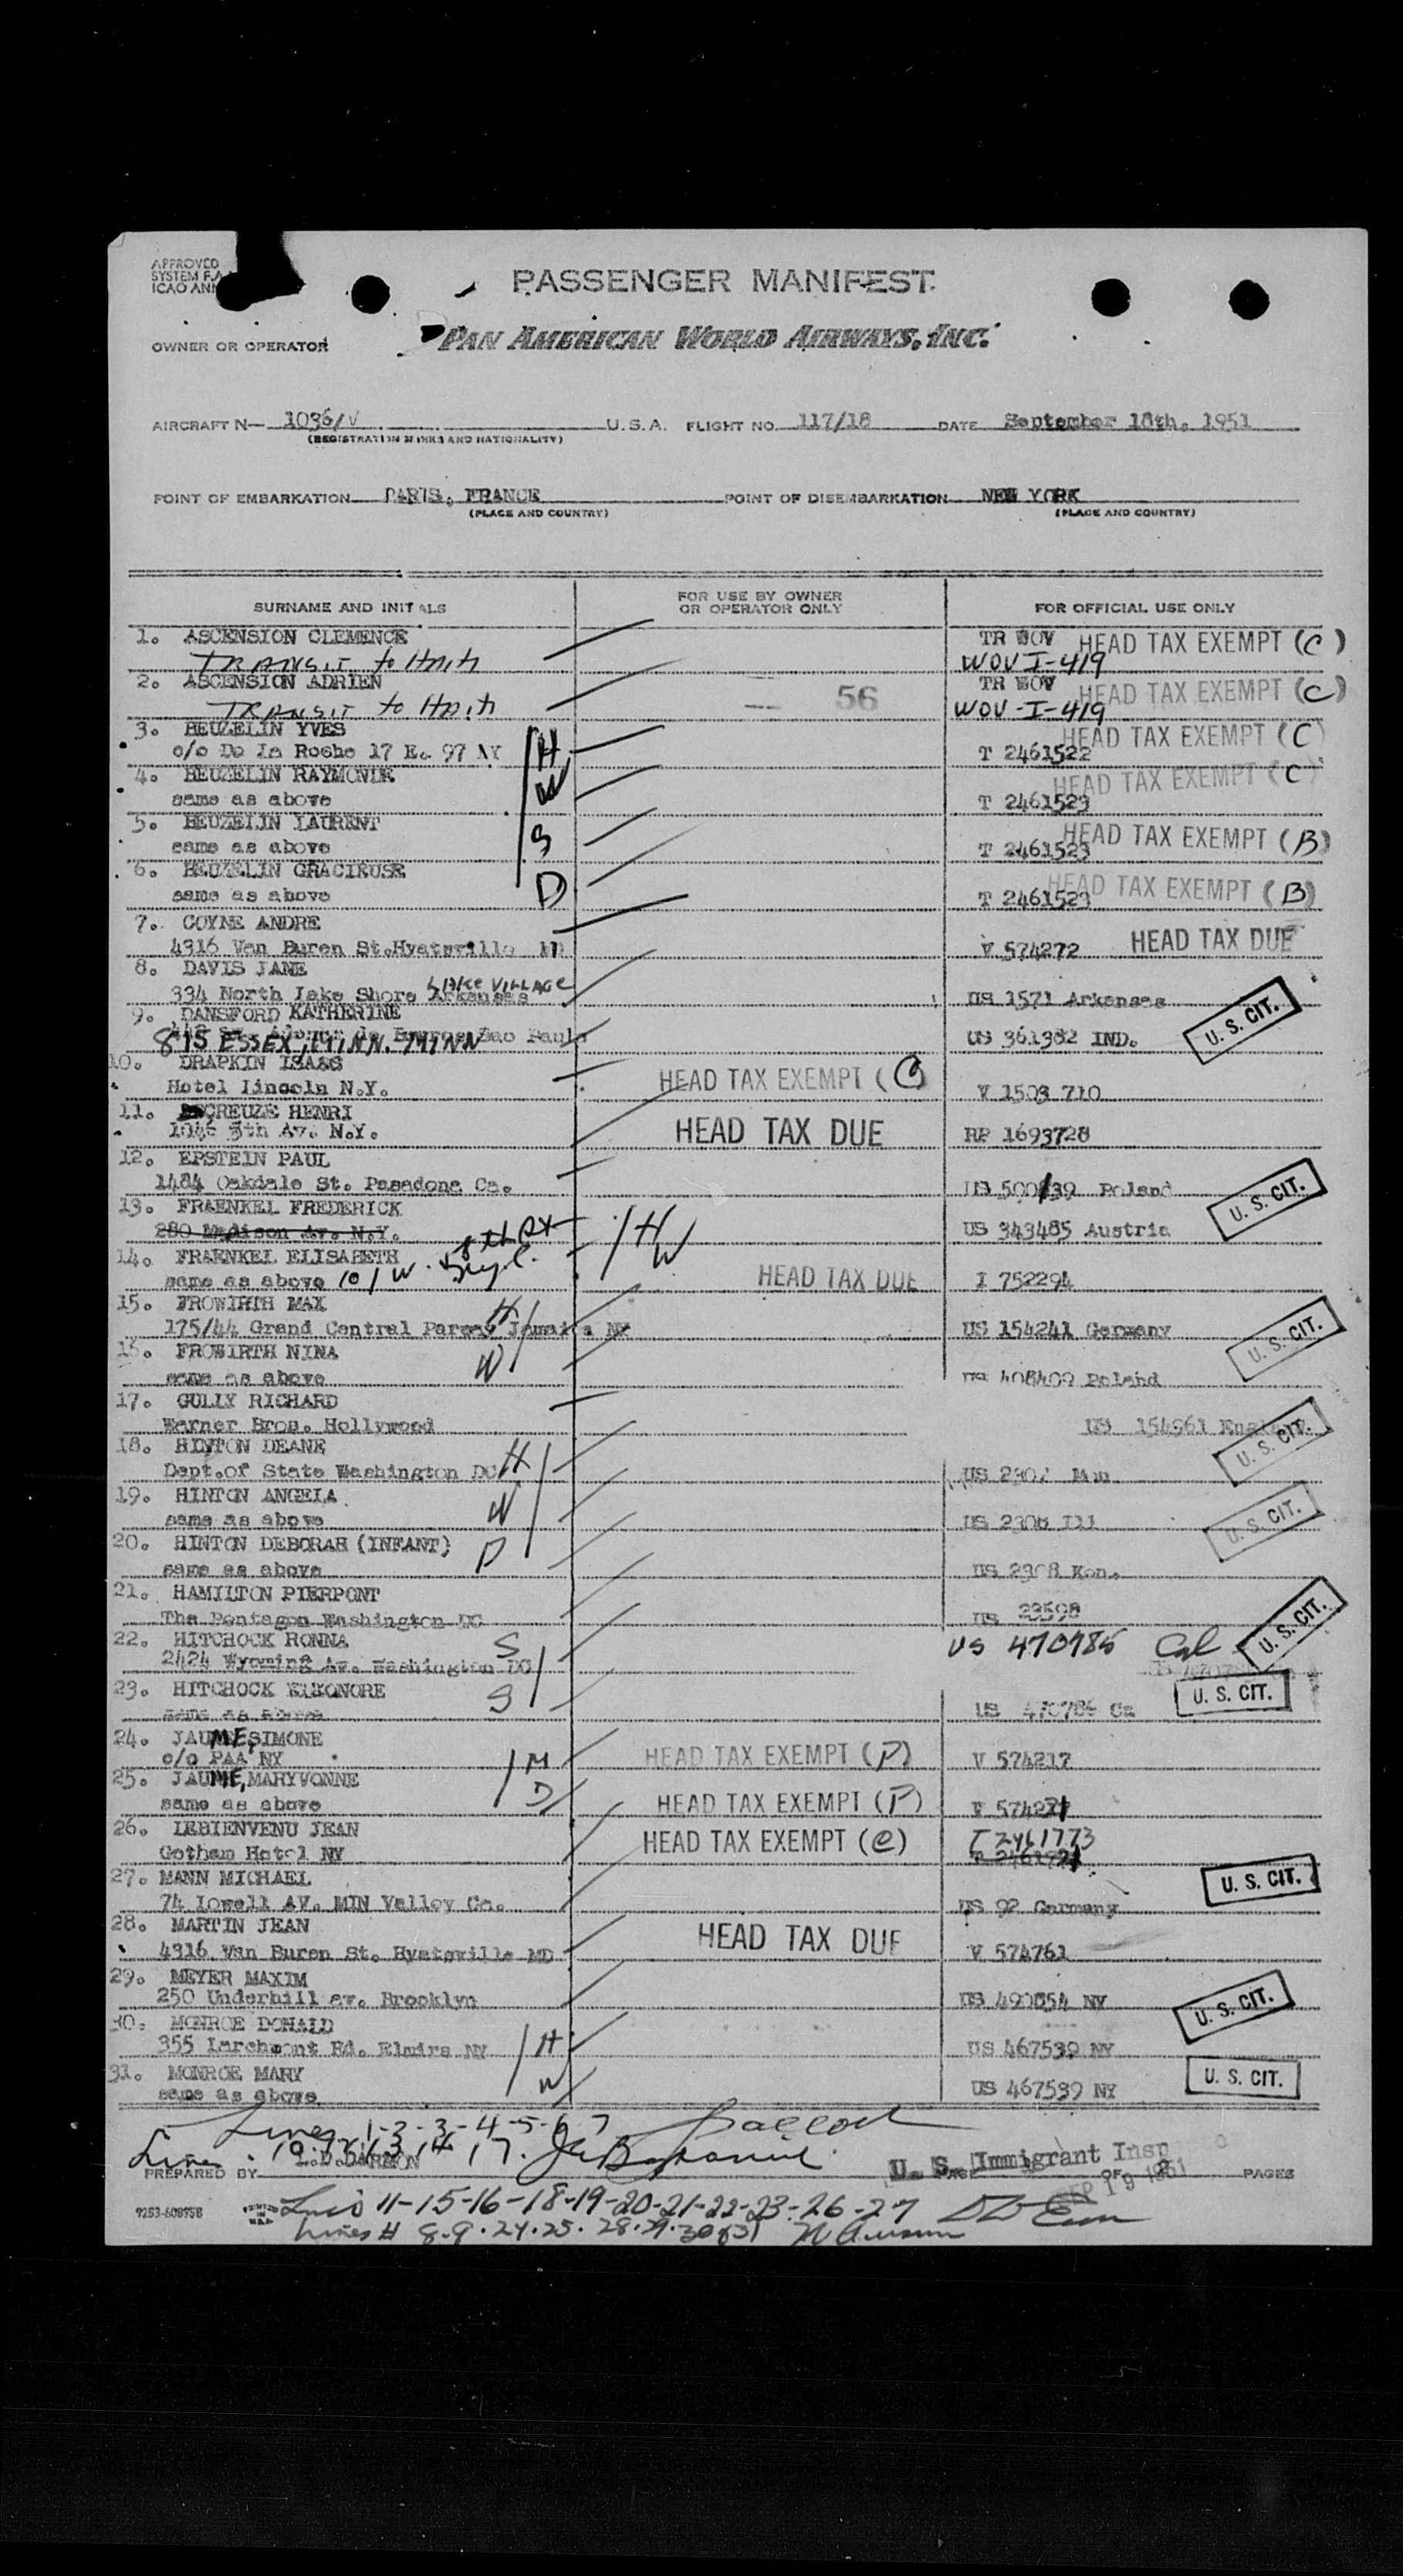 APPROVED
SYSTEM F.A
ICAO ANN
PASSENGER MANIFEST
OWNER OR OPERATOR
PAN AMERICAN WORLD AIRWAYS, INC.
AIRCRAFT N— 1036/V U.S.A. FLIGHT NO. 117/18 DATE September 18th, 1951
(REGISTRATION MARKS AND NATIONALITY)
POINT OF EMBARKATION PARIS, FRANCE POINT OF DISEMBARKATION NEW YORK
(PLACE AND COUNTRY) (PLACE AND COUNTRY)
SURNAME AND INITIALS FOR USE BY OWNER OR OPERATOR ONLY FOR OFFICIAL USE ONLY
1. ASCENSION CLEMENCE TR WOV HEAD TAX EXEMPT (C)
TRANSIT to Haiti WOV I-419
2. ASCENSION ADRIEN 56 TR WOV HEAD TAX EXEMPT (C)
TRANSIT to Haiti WOV-I-419
3. HEUZELIN YVES HEAD TAX EXEMPT (C)
c/o De La Roche 17 E. 97 NY H T 2461522
4. HEUZELIN RAYMONDE HEAD TAX EXEMPT (C)
same as above W T 2461523
5. HEUZELIN LAURENT HEAD TAX EXEMPT (B)
same as above S T 2461523
6. HEUZELIN GRACIEUSE HEAD TAX EXEMPT (B)
same as above D T 2461523
7. COYNE ANDRE
4316 Van Buren St.Hyatsville MD V 574272 HEAD TAX DUE
8. DAVIS JANE
334 North Lake Shore Arkansas LAKE VILLAGE US 1571 Arkansas
9. DANSFORD KATHERINE U. S. CIT.
815 ESSEX, MINN. MINN Sao Paulo US 361382 IND.
10. DRAPKIN ISAAC HEAD TAX EXEMPT (C)
Hotel Lincoln N.Y. V 1503 710
11. CREUZE HENRI HEAD TAX DUE
5th Av. N.Y. RP 1693728
12. EPSTEIN PAUL
1484 Oakdale St. Pasadena Ca. US 500139 Poland
13. FRAENKEL FREDERICK U. S. CIT.
280 Madison Av. N.Y. H US 343485 Austria
14. FRAENKEL ELISABETH W
same as above 101 W. 58th St HEAD TAX DUE I 752294
15. FROWIRTH MAX H
175/44 Grand Central Parway Jamaica NY US 154241 Germany
16. FROWIRTH NINA U. S. CIT.
same as above W US 408409 Poland
17. GULLY RICHARD
Warner Bros. Hollywood US 154561 England
18. HINTON DEANE U. S. CIT.
Dept.of State Washington DC H US 2307
19. HINTON ANGELA
same as above W US 2308 Ill U. S. CIT.
20. HINTON DEBORAH (INFANT)
same as above D US 2308 Ken.
21. HAMILTON PIERPONT
The Pentagon Washington DC US 23598
22. HITCHOCK RONNA S US 470785 Cal U. S. CIT.
2424 Wyoming Av. Washington DC
23. HITCHOCK ELEONORE S U. S. CIT.
same as above US 470786 Ca
24. JAUME, SIMONE
c/o PAA NY M HEAD TAX EXEMPT (P) V 574217
25. JAUME, MARYVONNE
same as above D HEAD TAX EXEMPT (P) V 574271
26. LEBIENVENU JEAN HEAD TAX EXEMPT (C) T 2461773
Gotham Hotel NY
27. MANN MICHAEL U. S. CIT.
74 Lowell AV. MIN Valley Ca. US 92 Germany
28. MARTIN JEAN HEAD TAX DUE
4316 Van Buren St. Hyatsville MD V 574761
29. MEYER MAXIM
250 Underhill av. Brooklyn US 490854 NY U. S. CIT.
30. MONROE DONALD
355 Larchmont Rd. Elmira NY H US 467539 NY
31. MONROE MARY
same as above W US 467539 NY U. S. CIT.
Lines 1-2-3-4-5-6-7
Lines 10-12-13-14 17.
PREPARED BY U. S. Immigrant Insp OF 2 PAGES
SEP 19 1951
9253-608958 PRINTED IN U.S.A. Lines 11-15-16-18-19-20-21-22-23-26-27
Lines # 8.9.24.25.28.29.30 & 31